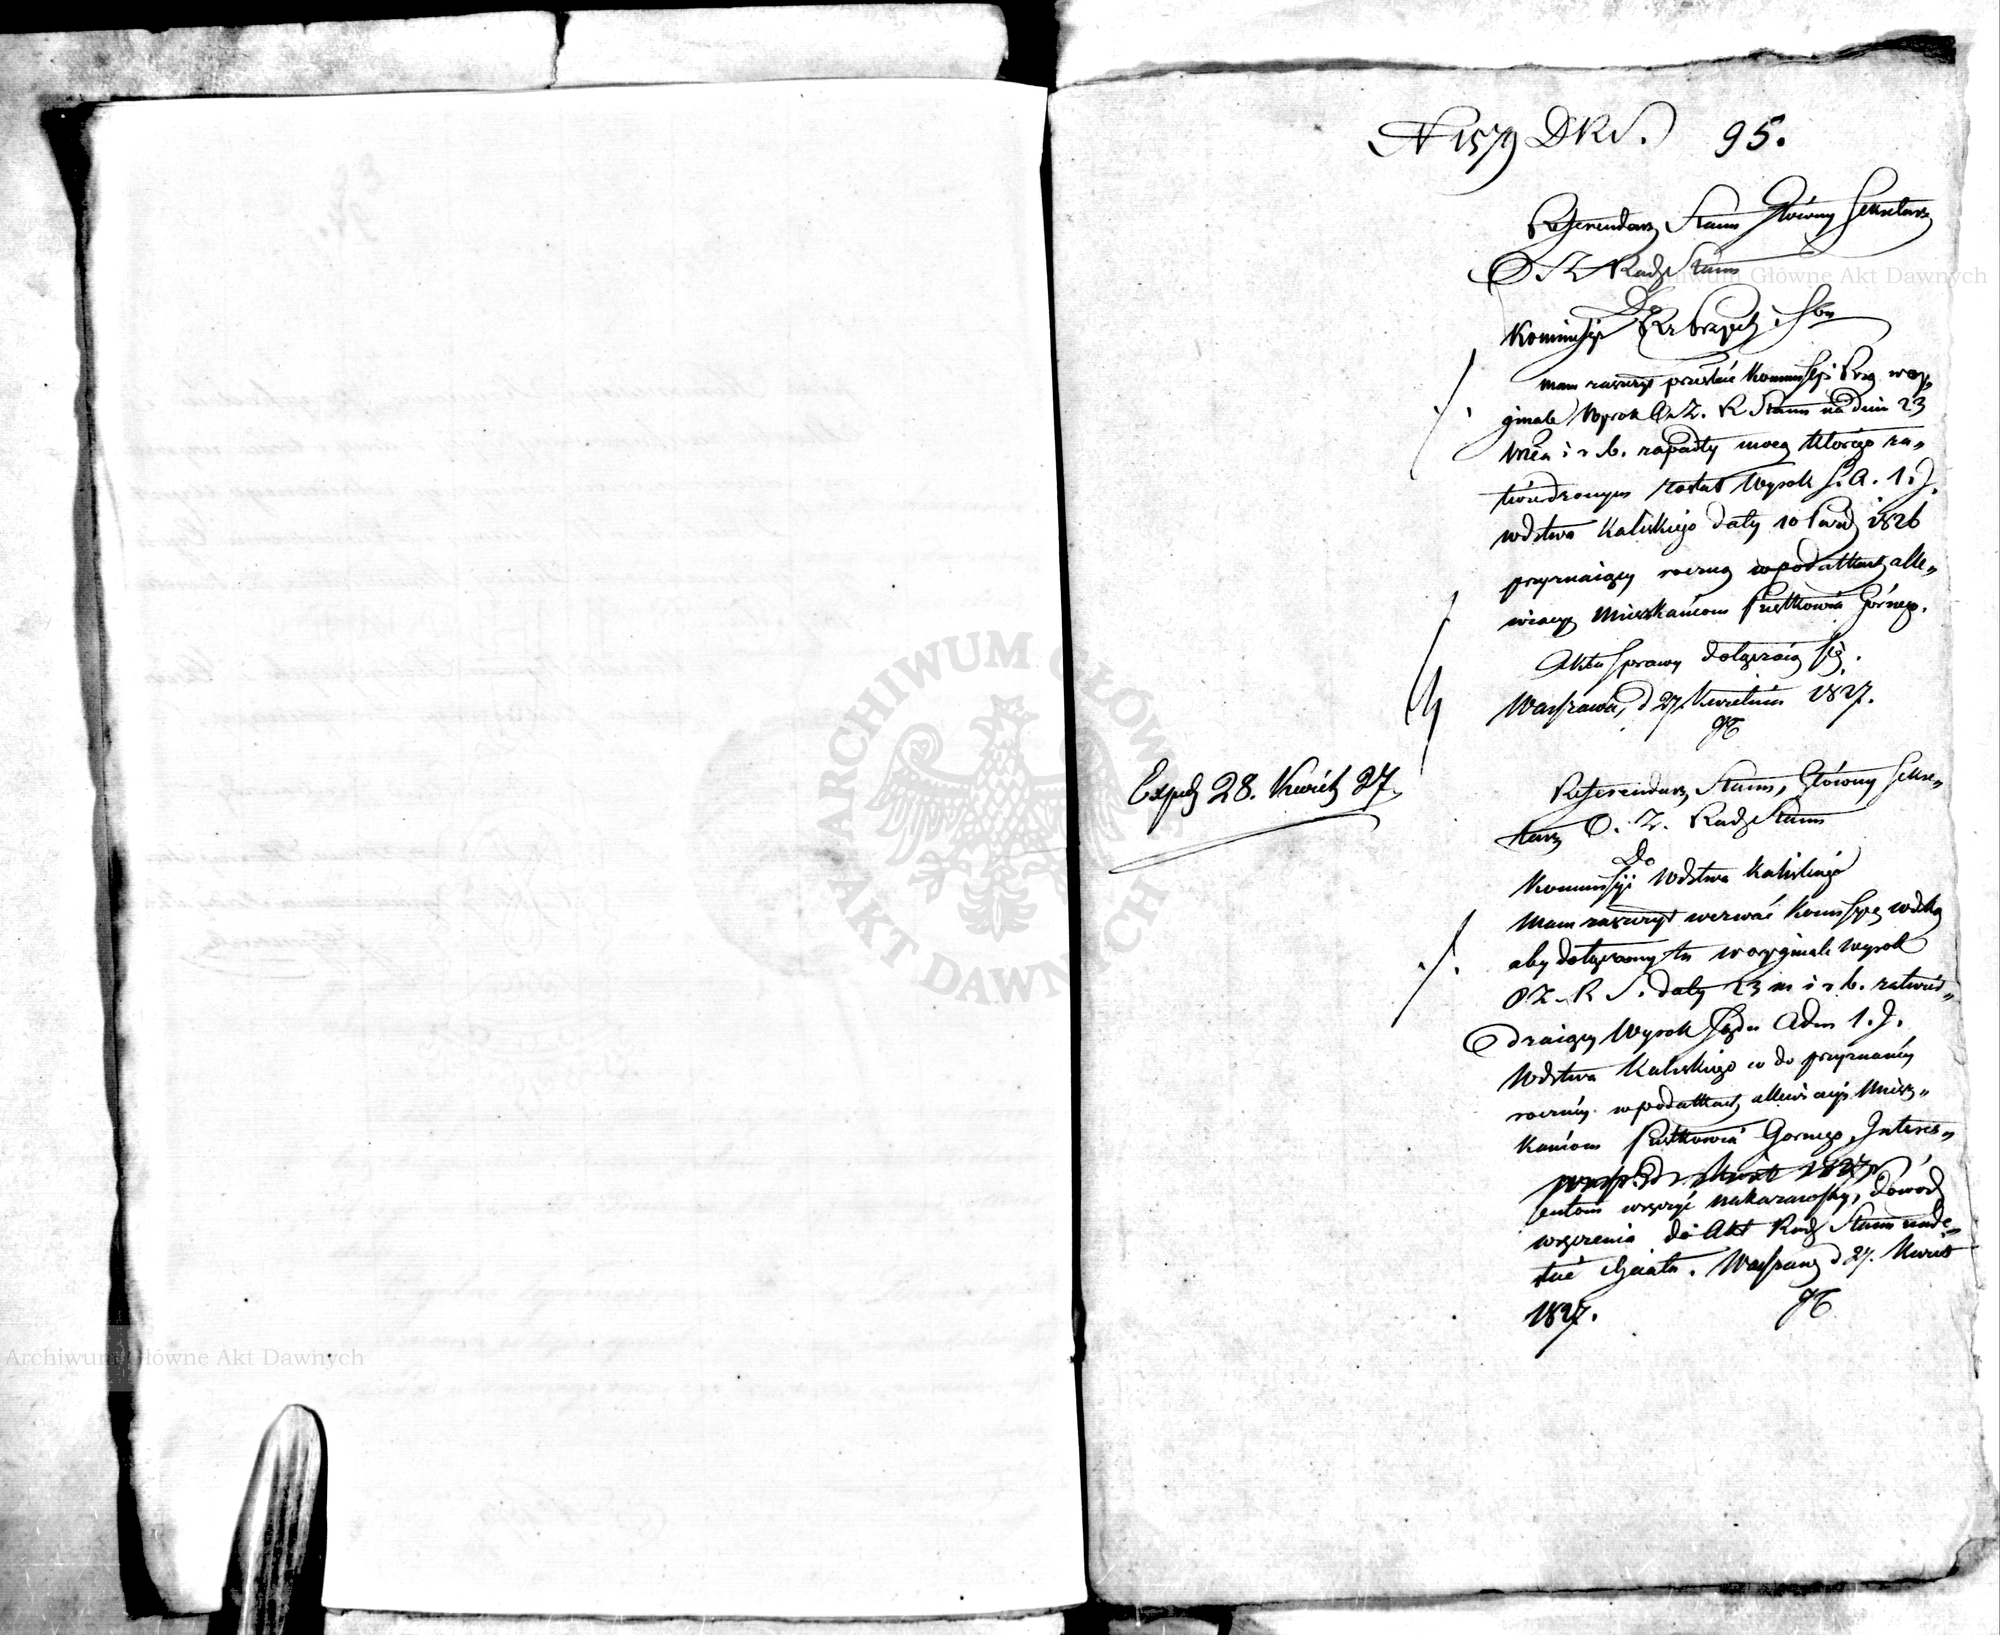 N 1579 DRS. 95.
Referendarz Stanu Główny Sekretarz
O. Z. Rady Stanu
Do
Kommissyi Rz Przych i Sbu
mam zaszczyt przesłać Kommissyi Rząd w ory„
ginale Wyrok O. Z. R Stanu na dniu 23
mca i r. b. zapadły mocą którego za„
twierdzonym został Wyrok S. A. 1. J.
wdztwa Kaliskiego daty 10 Paźd 1826
przyznaiący roczną w podatkach alle„
wiacyą Mieszkańcom Pustkowia Górnego.
Akta sprawy dołączaią się.
Warszawa, d 27 Kwietnia 1827.
Exped 28. Kwiet 27.
Referendarz Stanu, Główny Sekre„
tarz O. Z. Rady Stanu
Do
Kommissyi Wdztwa Kaliskiego
Mam zaszczyt wezwać Kommissyę wdzką
aby dołączony tu w oryginale Wyrok
O. Z. R S. daty 23 m i r b. zatwier„
dzaiący Wyrok Sądu Adm 1. J.
Wdztwa Kaliskiego co do przyznaney
roczney w podatkach allewiacyi Miesz„
kańcom Pustkowia Gornego, Interes„
sentom wręczyć nakazawszy, dowód
wręczenia do Akt Rady Stanu nade„
słać chciała. Warszawa d 27. Kwiet
1827.
ARCHIWUM GŁÓWNE AKT DAWNYCH
Archiwum Główne Akt Dawnych
Archiwum Główne Akt Dawnych